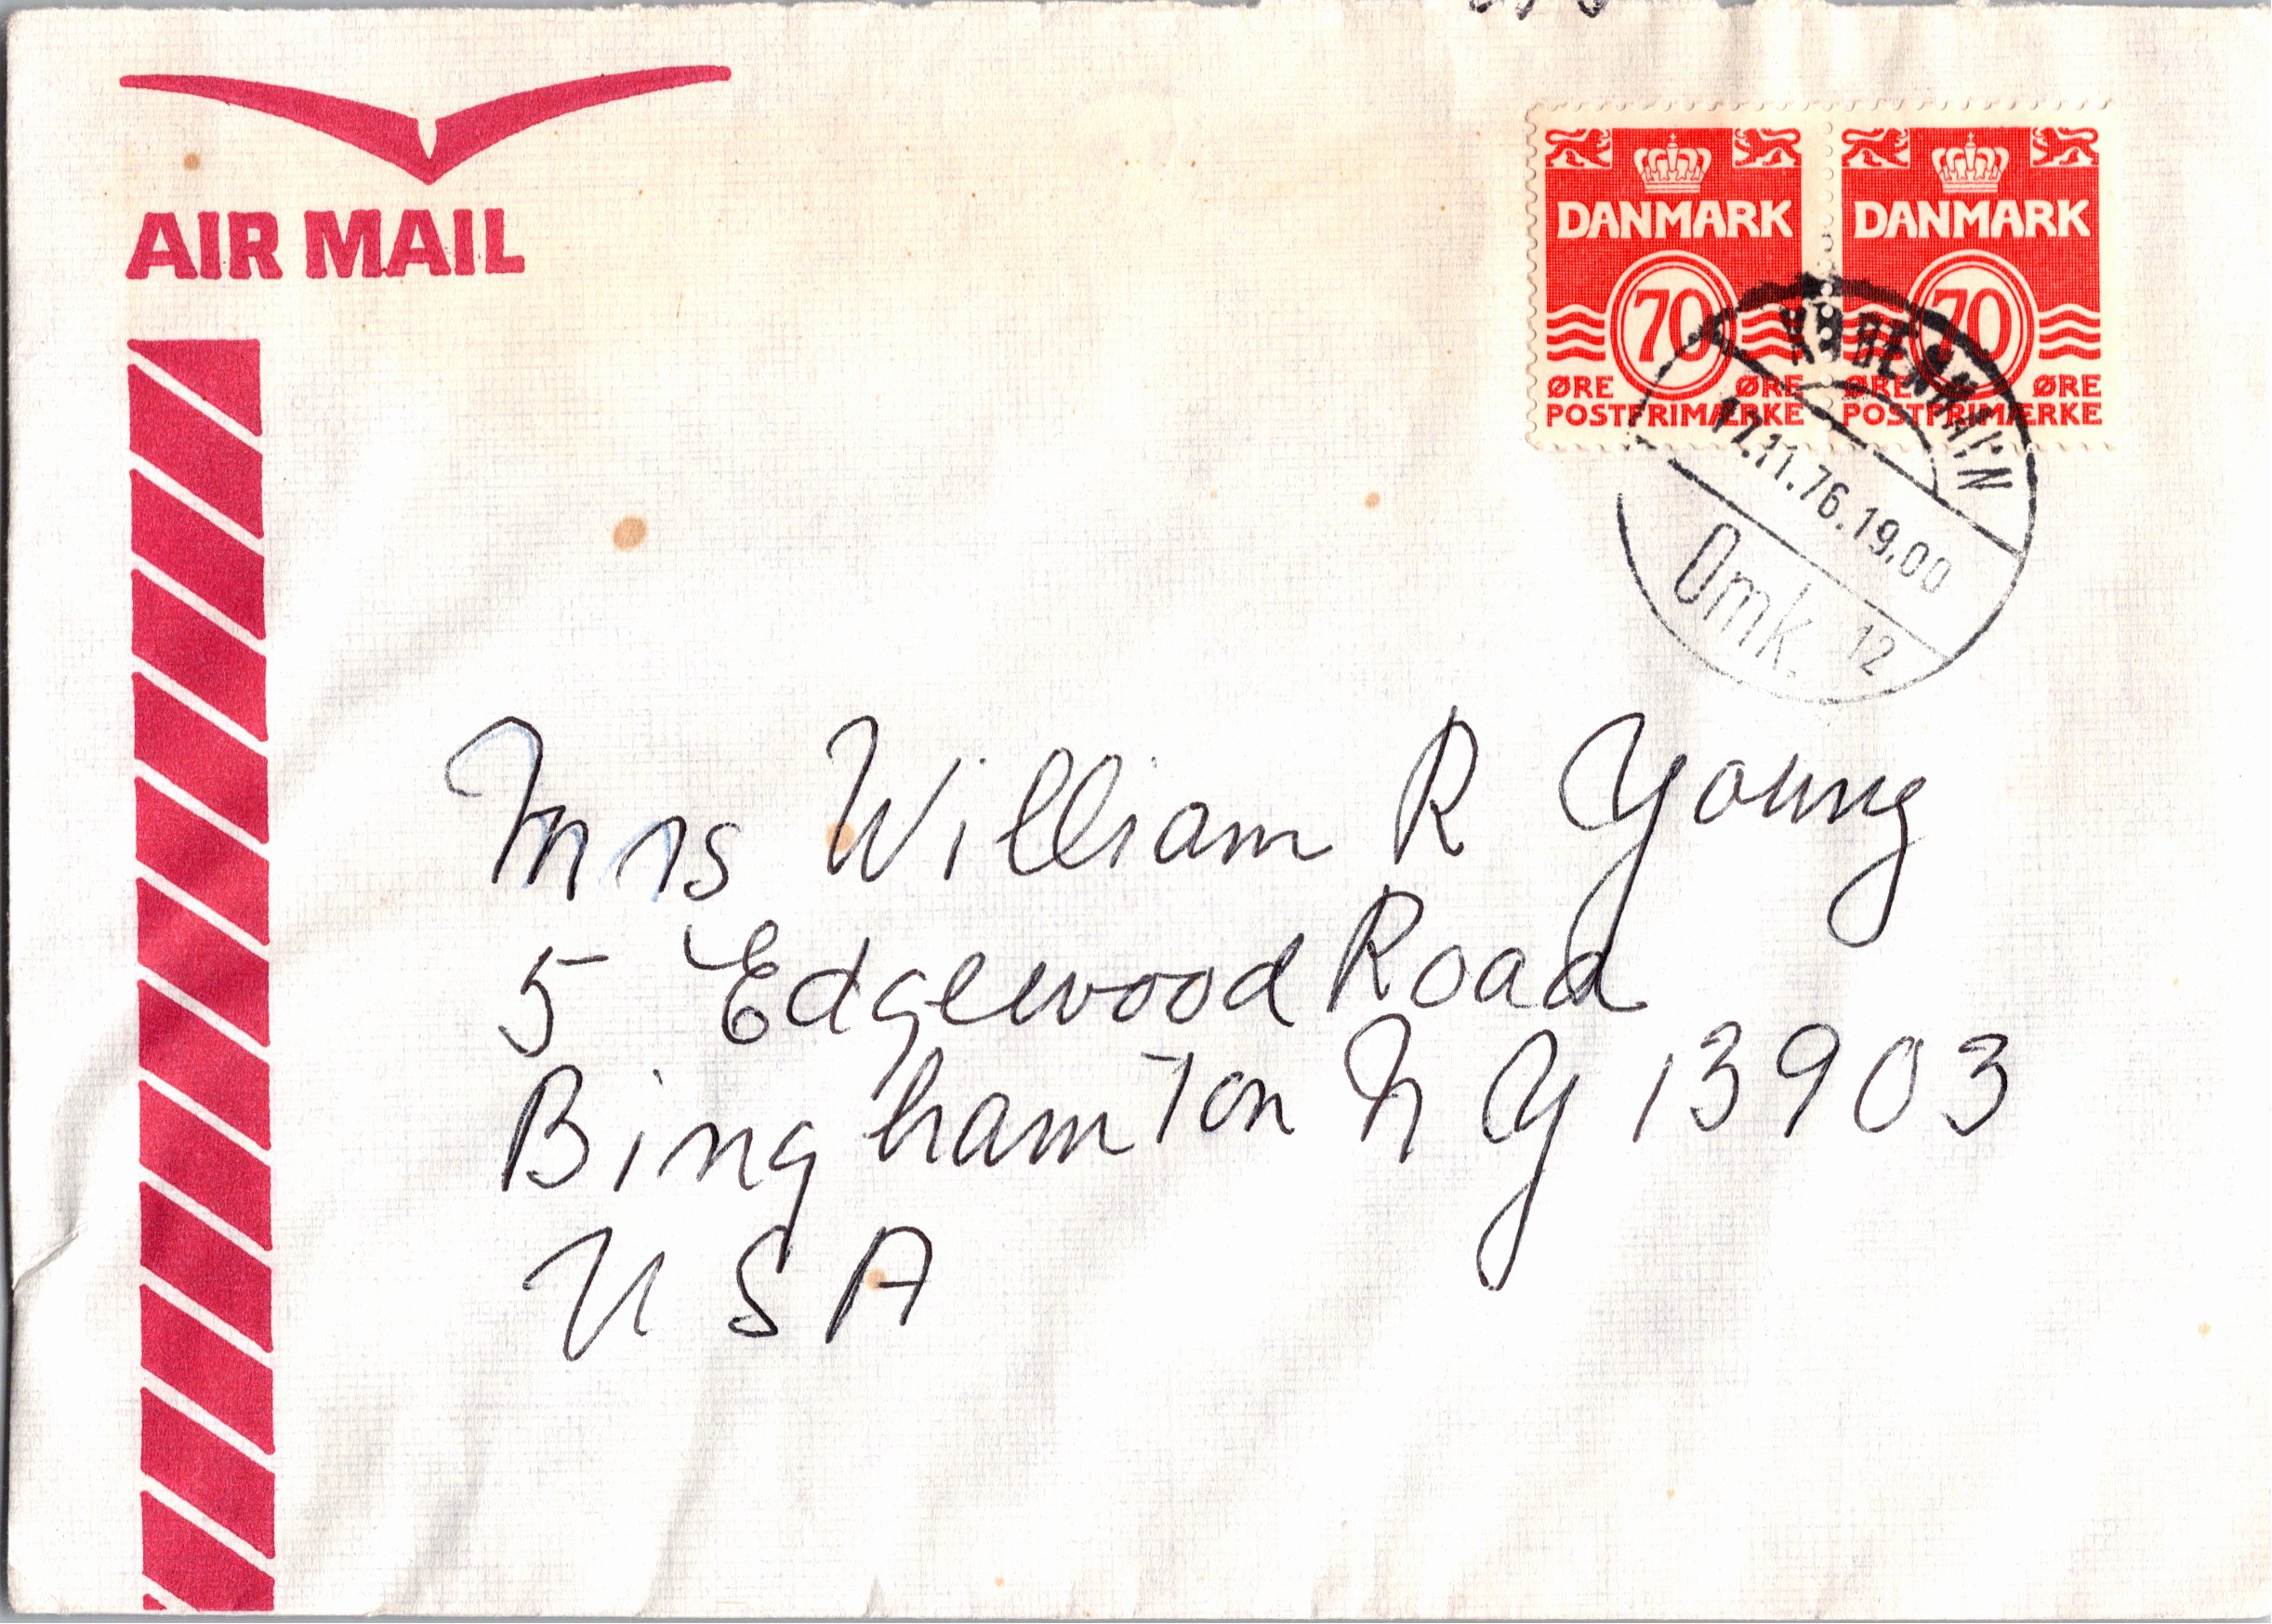 AIR MAIL
DANMARK
70
ØRE ØRE
POSTFRIMÆRKE
DANMARK
70
ØRE ØRE
POSTFRIMÆRKE
KØBENHAVN
.11.76.19.00
Omk. 12
Mrs William R Young
5 Edgewood Road
Binghamton N Y 13903
U S A